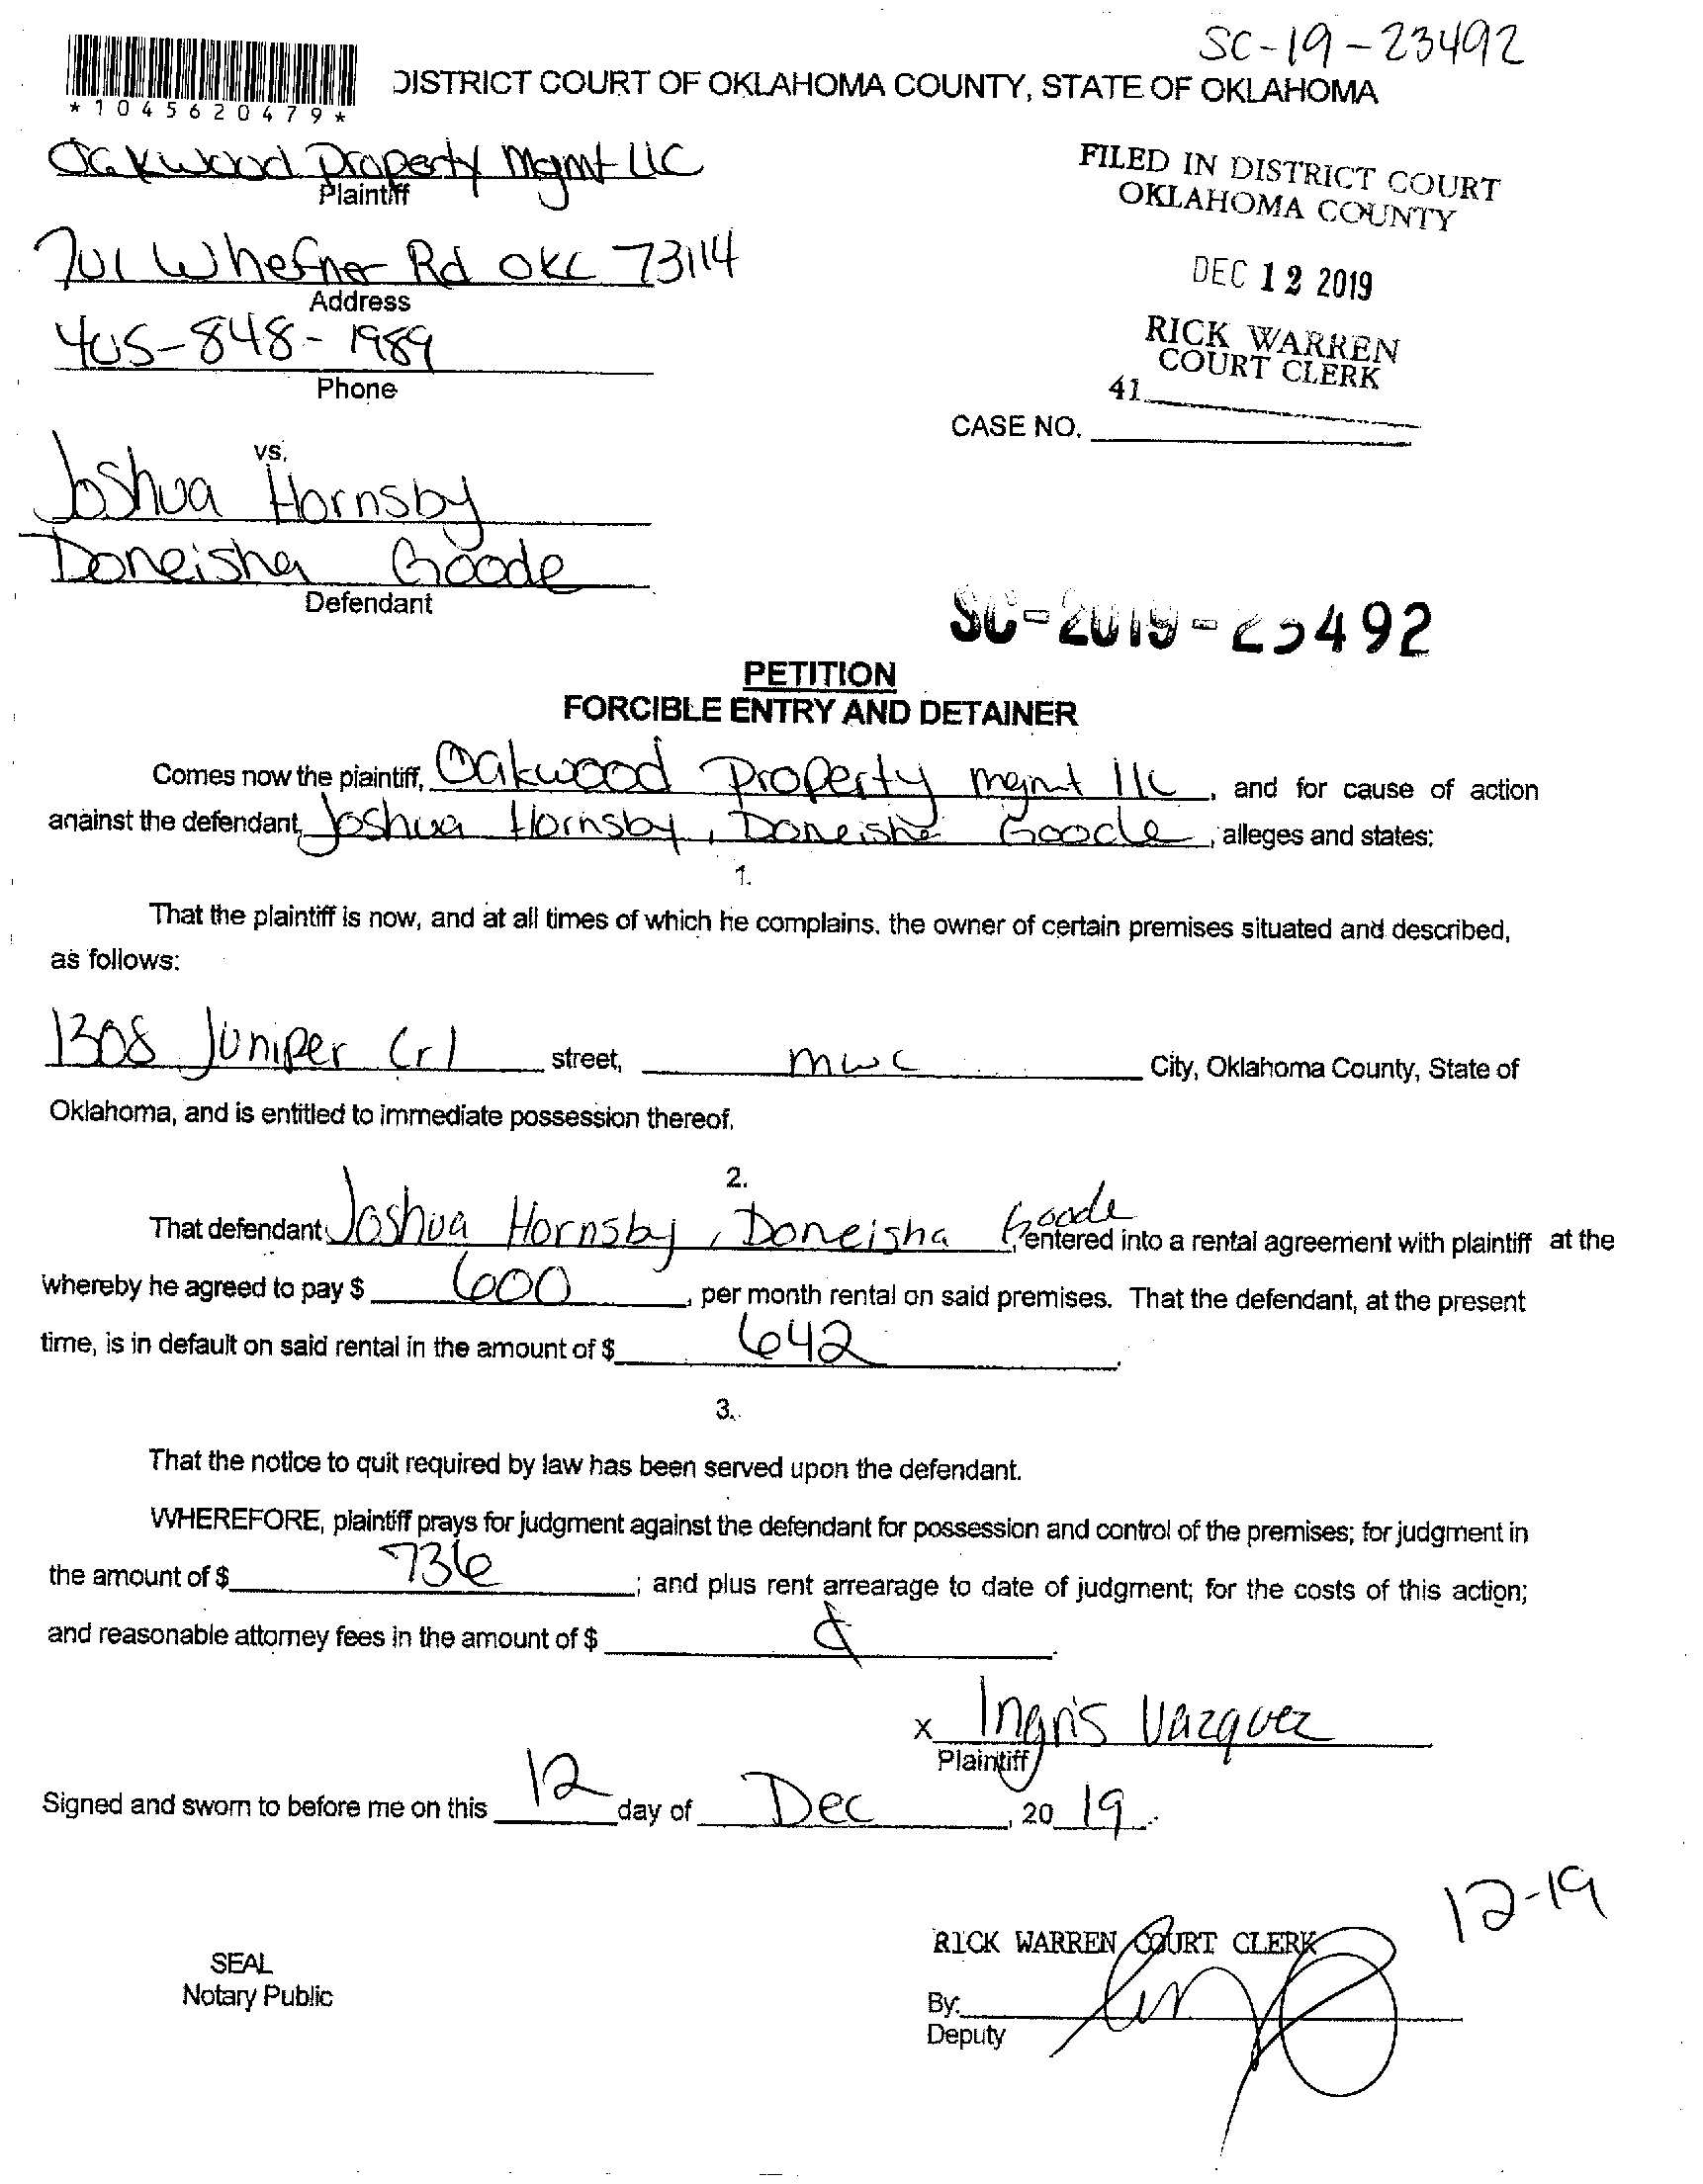 SC-19-23492
*1045620479*
DISTRICT COURT OF OKLAHOMA COUNTY, STATE OF OKLAHOMA
Oakwood Property Mgmt LLC
Plaintiff
FILED IN DISTRICT COURT
OKLAHOMA COUNTY
701 W hefner Rd OKC 73114
Address
DEC 12 2019
405-848-1989
Phone
RICK WARREN
COURT CLERK
41
CASE NO.
vs.
Joshua Hornsby
Doneisha Goode
Defendant
SC-2019-23492
PETITION
FORCIBLE ENTRY AND DETAINER
Comes now the plaintiff, Oakwood Property mgmt llc, and for cause of action
against the defendant, Joshua Hornsby, Doneisha Goode, alleges and states:
1.
That the plaintiff is now, and at all times of which he complains, the owner of certain premises situated and described,
as follows:
1308 Juniper Crl street, mwc City, Oklahoma County, State of
Oklahoma, and is entitled to immediate possession thereof.
2.
That defendant Joshua Hornsby, Doneisha Goode, entered into a rental agreement with plaintiff at the
whereby he agreed to pay $ 600, per month rental on said premises. That the defendant, at the present
time, is in default on said rental in the amount of $ 642.
3.
That the notice to quit required by law has been served upon the defendant.
WHEREFORE, plaintiff prays for judgment against the defendant for possession and control of the premises; for judgment in
the amount of $ 736; and plus rent arrearage to date of judgment; for the costs of this action;
and reasonable attorney fees in the amount of $
x Ingris Vazquez
Plaintiff
Signed and sworn to before me on this 12 day of Dec, 20 19.
12-19
RICK WARREN COURT CLERK
SEAL
Notary Public
By:
Deputy